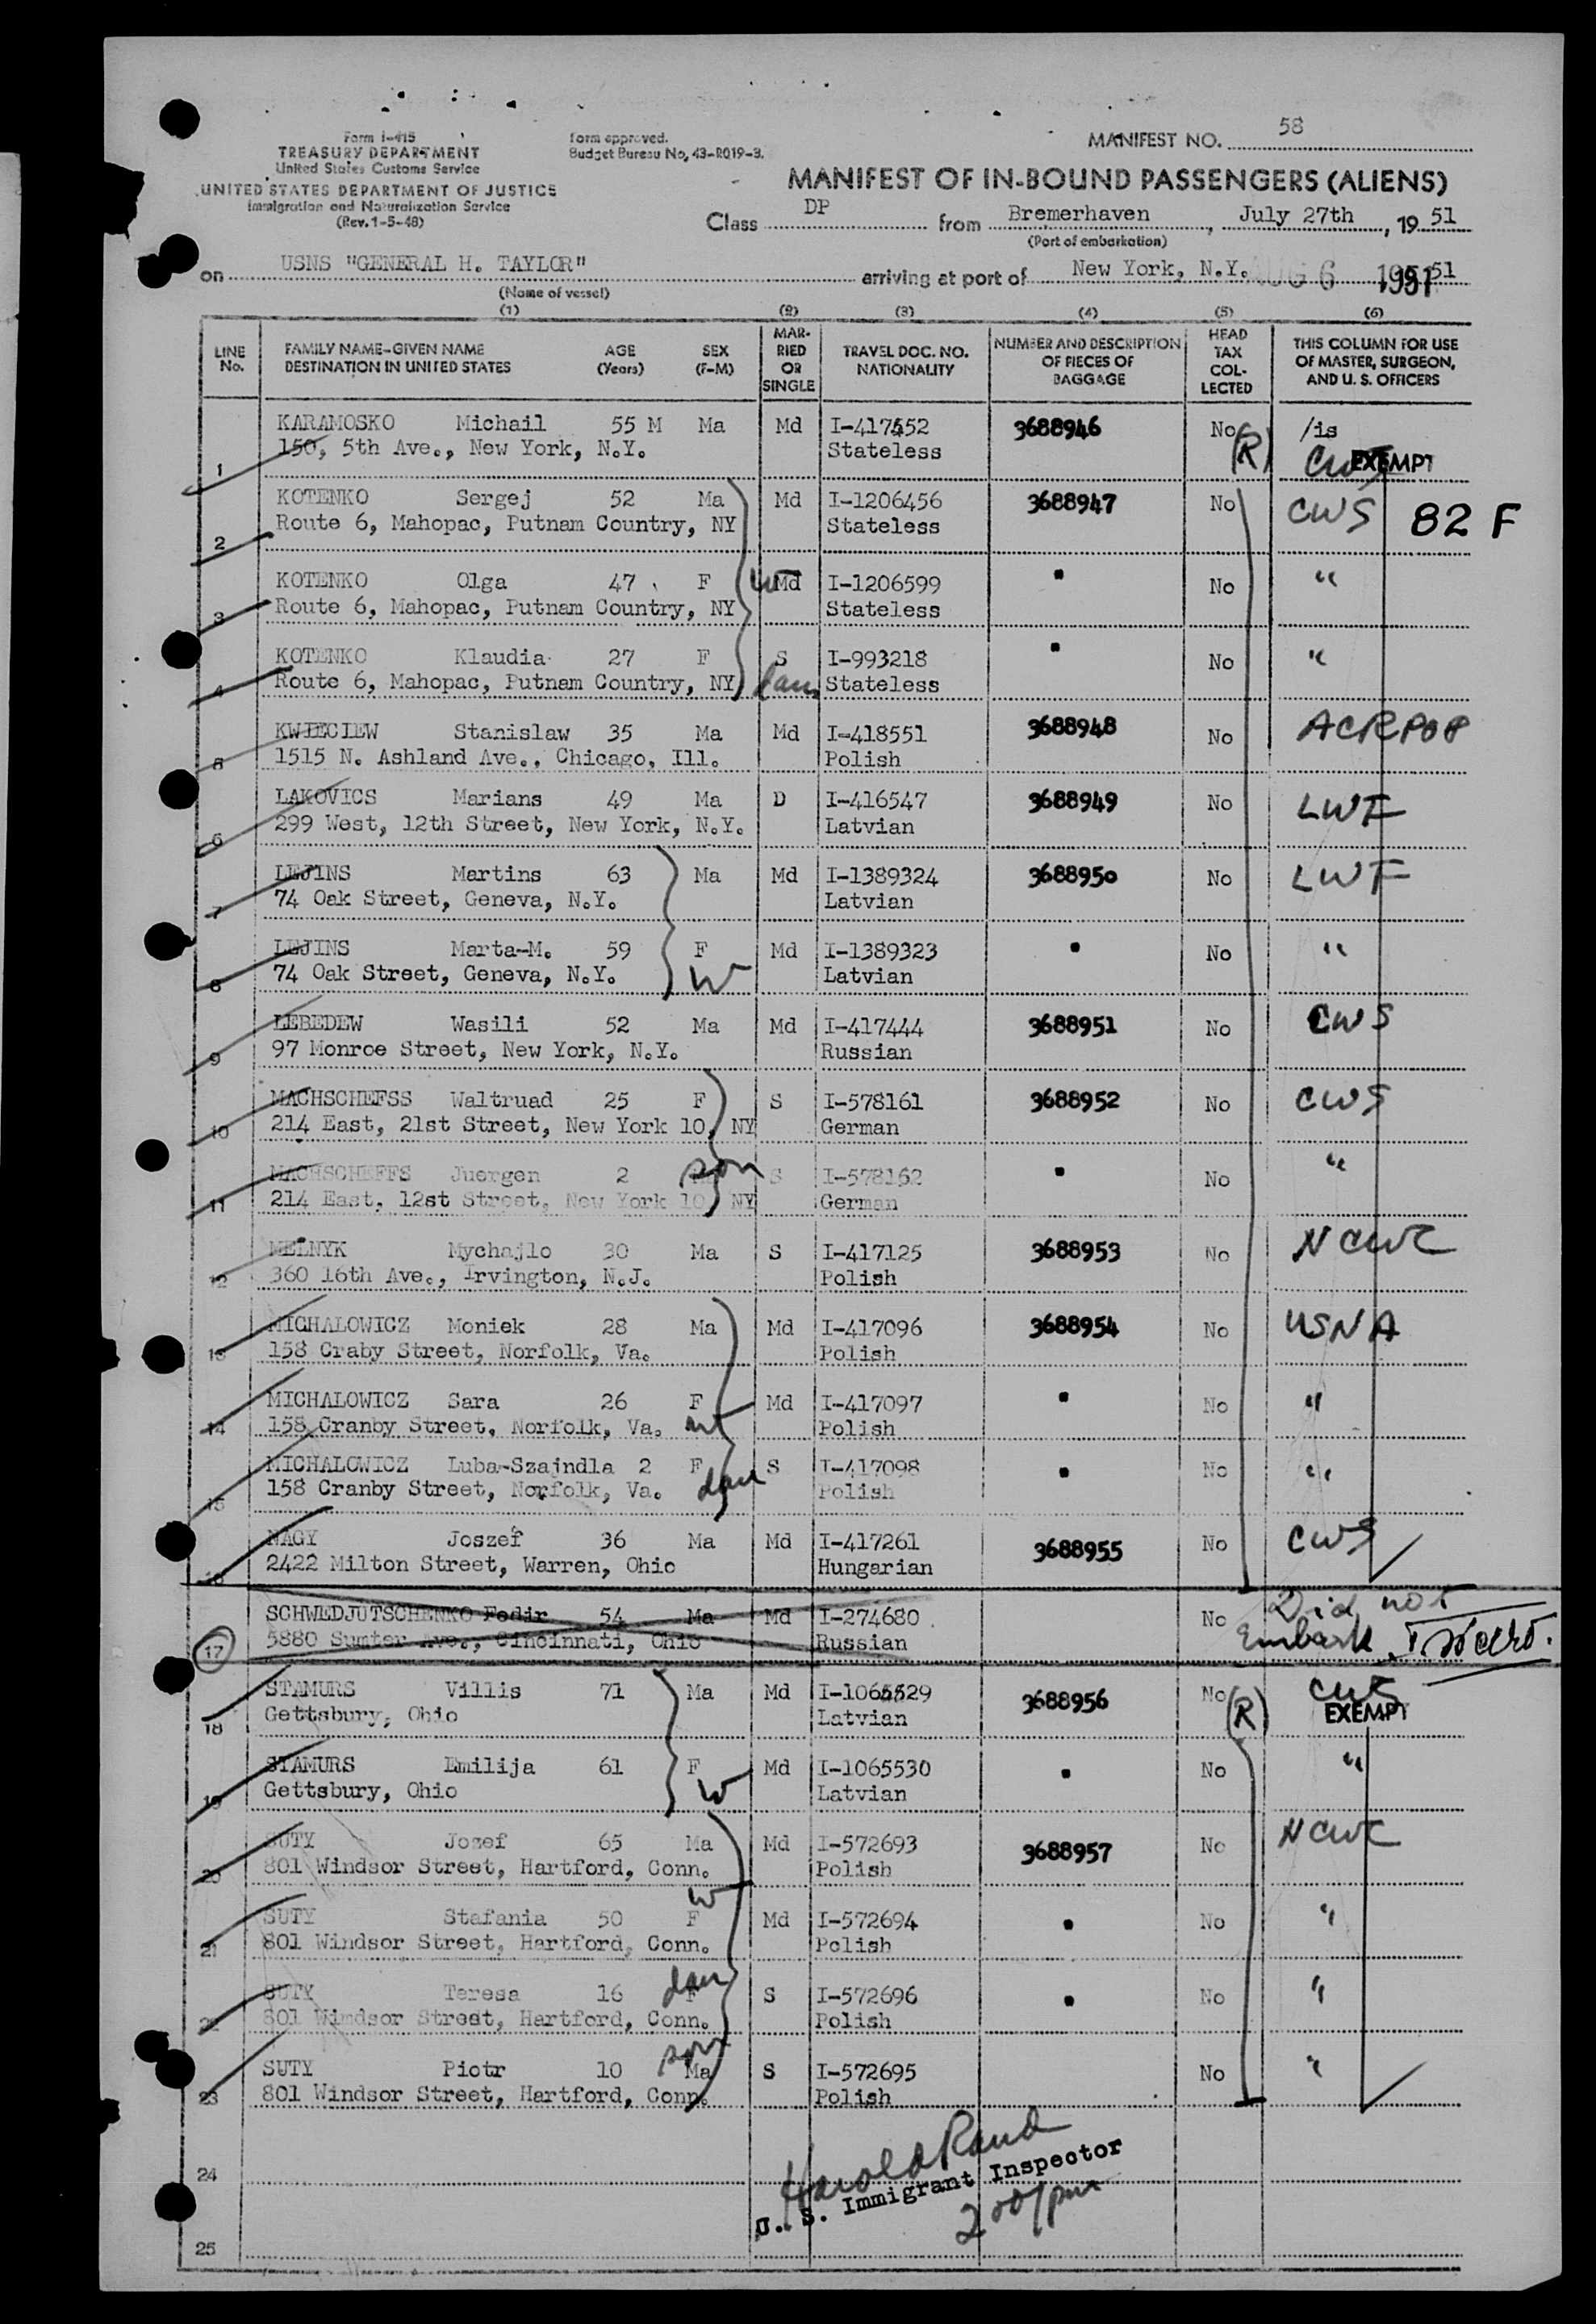 Form I-415
TREASURY DEPARTMENT
United States Customs Service
UNITED STATES DEPARTMENT OF JUSTICE
Immigration and Naturalization Service
(Rev. 1-5-48)
form approved.
Budget Bureau No, 43-R019-3.
MANIFEST NO. 58
MANIFEST OF IN-BOUND PASSENGERS (ALIENS)
Class DP from Bremerhaven, July 27th, 19 51
(Port of embarkation)
on USNS "GENERAL H. TAYLOR" arriving at port of New York, N.Y. AUG 6 1951 51
(Name of vessel)
(1) (2) (3) (4) (5) (6)
LINE No. FAMILY NAME-GIVEN NAME DESTINATION IN UNITED STATES AGE (Years) SEX (F-M) MARRIED OR SINGLE TRAVEL DOC. NO. NATIONALITY NUMBER AND DESCRIPTION OF PIECES OF BAGGAGE HEAD TAX COLLECTED THIS COLUMN FOR USE OF MASTER, SURGEON, AND U. S. OFFICERS
1 KARAMOSKO Michail 55 M Ma Md I-417452 3688946 No (R) /is
150, 5th Ave., New York, N.Y. Stateless CWS EXEMPT
2 KOTENKO Sergej 52 Ma Md I-1206456 3688947 No CWS 82 F
Route 6, Mahopac, Putnam Country, NY Stateless
3 KOTENKO Olga 47 F W Md I-1206599 " No "
Route 6, Mahopac, Putnam Country, NY Stateless
4 KOTENKO Klaudia 27 F S I-993218 " No "
Route 6, Mahopac, Putnam Country, NY dau Stateless
5 KWIECIEW Stanislaw 35 Ma Md I-418551 3688948 No
1515 N. Ashland Ave., Chicago, Ill. Polish
6 LAKOVICS Marians 49 Ma D I-416547 3688949 No LWF
299 West, 12th Street, New York, N.Y. Latvian
7 LEJINS Martins 63 Ma Md I-1389324 3688950 No LWF
74 Oak Street, Geneva, N.Y. Latvian
8 LEJINS Marta-M. 59 F Md I-1389323 " No "
74 Oak Street, Geneva, N.Y. W Latvian
9 LEBEDEW Wasili 52 Ma Md I-417444 3688951 No CWS
97 Monroe Street, New York, N.Y. Russian
10 MACHSCHEFSS Waltruad 25 F S I-578161 3688952 No CWS
214 East, 21st Street, New York 10, NY German
11 MACHSCHEFFS Juergen 2 son S I-578162 " No "
214 East, 12st Street, New York 10, NY German
12 MELNYK Mychajlo 30 Ma S I-417125 3688953 No NCWC
360 16th Ave., Irvington, N.J. Polish
13 MICHALOWICZ Moniek 28 Ma Md I-417096 3688954 No USNA
158 Craby Street, Norfolk, Va. Polish
14 MICHALOWICZ Sara 26 F Md I-417097 " No "
158 Cranby Street, Norfolk, Va. W Polish
15 MICHALOWICZ Luba-Szajndla 2 F S I-417098 " No "
158 Cranby Street, Norfolk, Va. dau Polish
16 NAGY Joszef 36 Ma Md I-417261 3688955 No CWS
2422 Milton Street, Warren, Ohio Hungarian
17 SCHWEDJUTSCHENKO Fedir 54 Ma Md I-274680 No Did not
5880 Sumter Ave., Cincinnati, Ohio Russian Embark
18 STAMURS Villis 71 Ma Md I-1065529 3688956 No (R) CWS
Gettsbury, Ohio Latvian EXEMPT
19 STAMURS Emilija 61 F Md I-1065530 " No "
Gettsbury, Ohio W Latvian
20 SUTY Jozef 65 Ma Md I-572693 3688957 No NCWC
801 Windsor Street, Hartford, Conn. Polish
21 SUTY Stafania 50 W F Md I-572694 " No "
801 Windsor Street, Hartford, Conn. Polish
22 SUTY Teresa 16 dau F S I-572696 " No "
801 Windsor Street, Hartford, Conn. Polish
23 SUTY Piotr 10 son Ma S I-572695 No "
801 Windsor Street, Hartford, Conn. Polish
24
Harold Rand
U. S. Immigrant Inspector
25